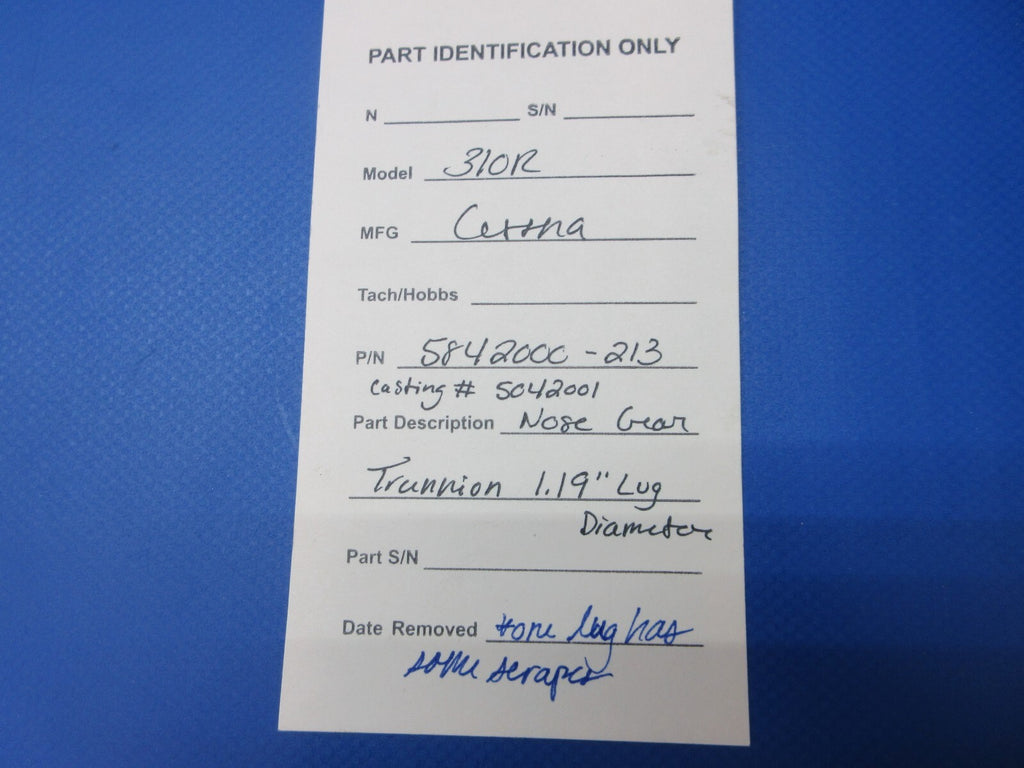 PART IDENTIFICATION ONLY
N S/N
Model 310R
MFG Cessna
Tach/Hobbs
P/N 5842000-213
Casting # 5042001
Part Description Nose Gear
Trunnion 1.19" Lug
Diameter
Part S/N
Date Removed *one lug has
some scrapes